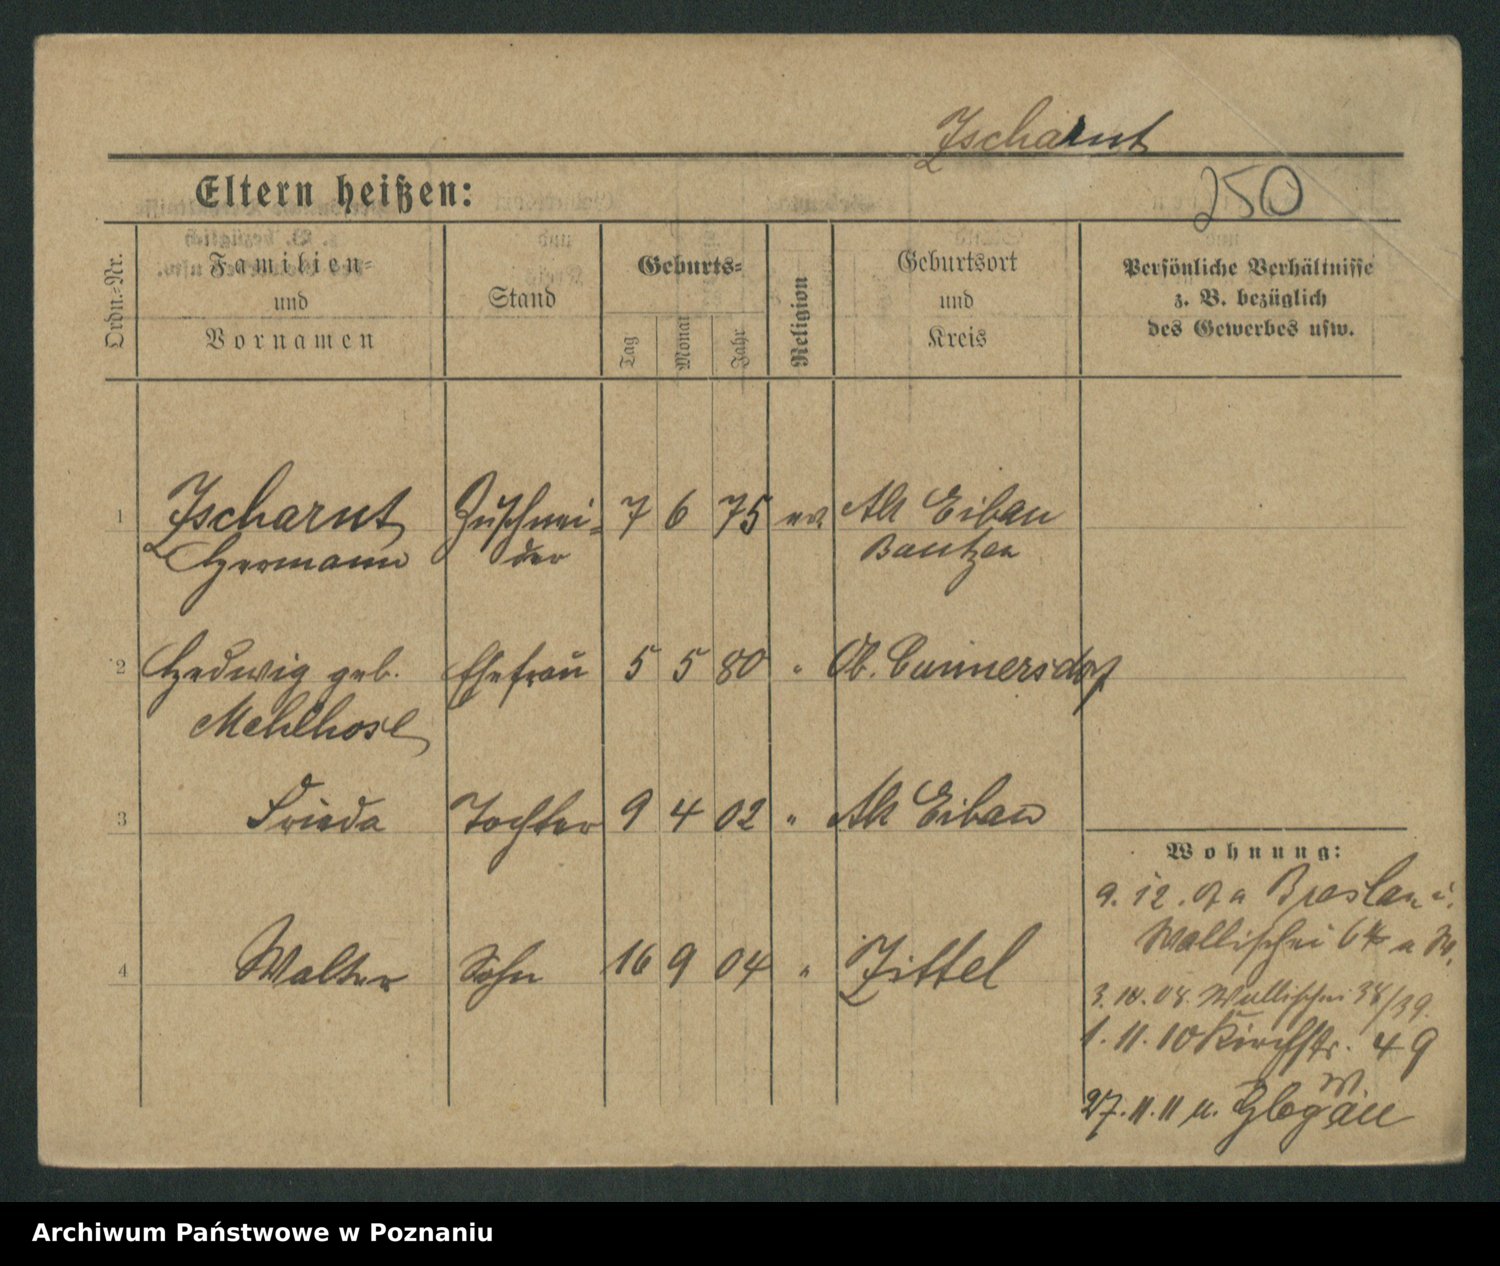 Zscharnt
Eltern heißen:
250
Ordn.=Nr.
Familien=
und
Vornamen
Stand
Geburts=
Tag
Monat
Jahr
Religion
Geburtsort
und
Kreis
Persönliche Verhältnisse
z. B. bezüglich
des Gewerbes usw.
1 Zscharnt Zuschnei= 7 6 75 ev Alt Eibau
Hermann der Bautzen
2 Hedwig geb. Ehefrau 5 5 80 " Ob. Cunnersdorf
Mehlhose
3 Frieda Tochter 9 4 02 " Alt Eibau
4 Walter Sohn 16 9 04 " Zittel
Wohnung:
9. 12. 07 a Breslau
Wallischei a W.
3. 10. 08. Wallischei 38/39.
1. 11. 10 Kirchstr. 49
W.
27. 11. 11 n. Glogau
Archiwum Państwowe w Poznaniu